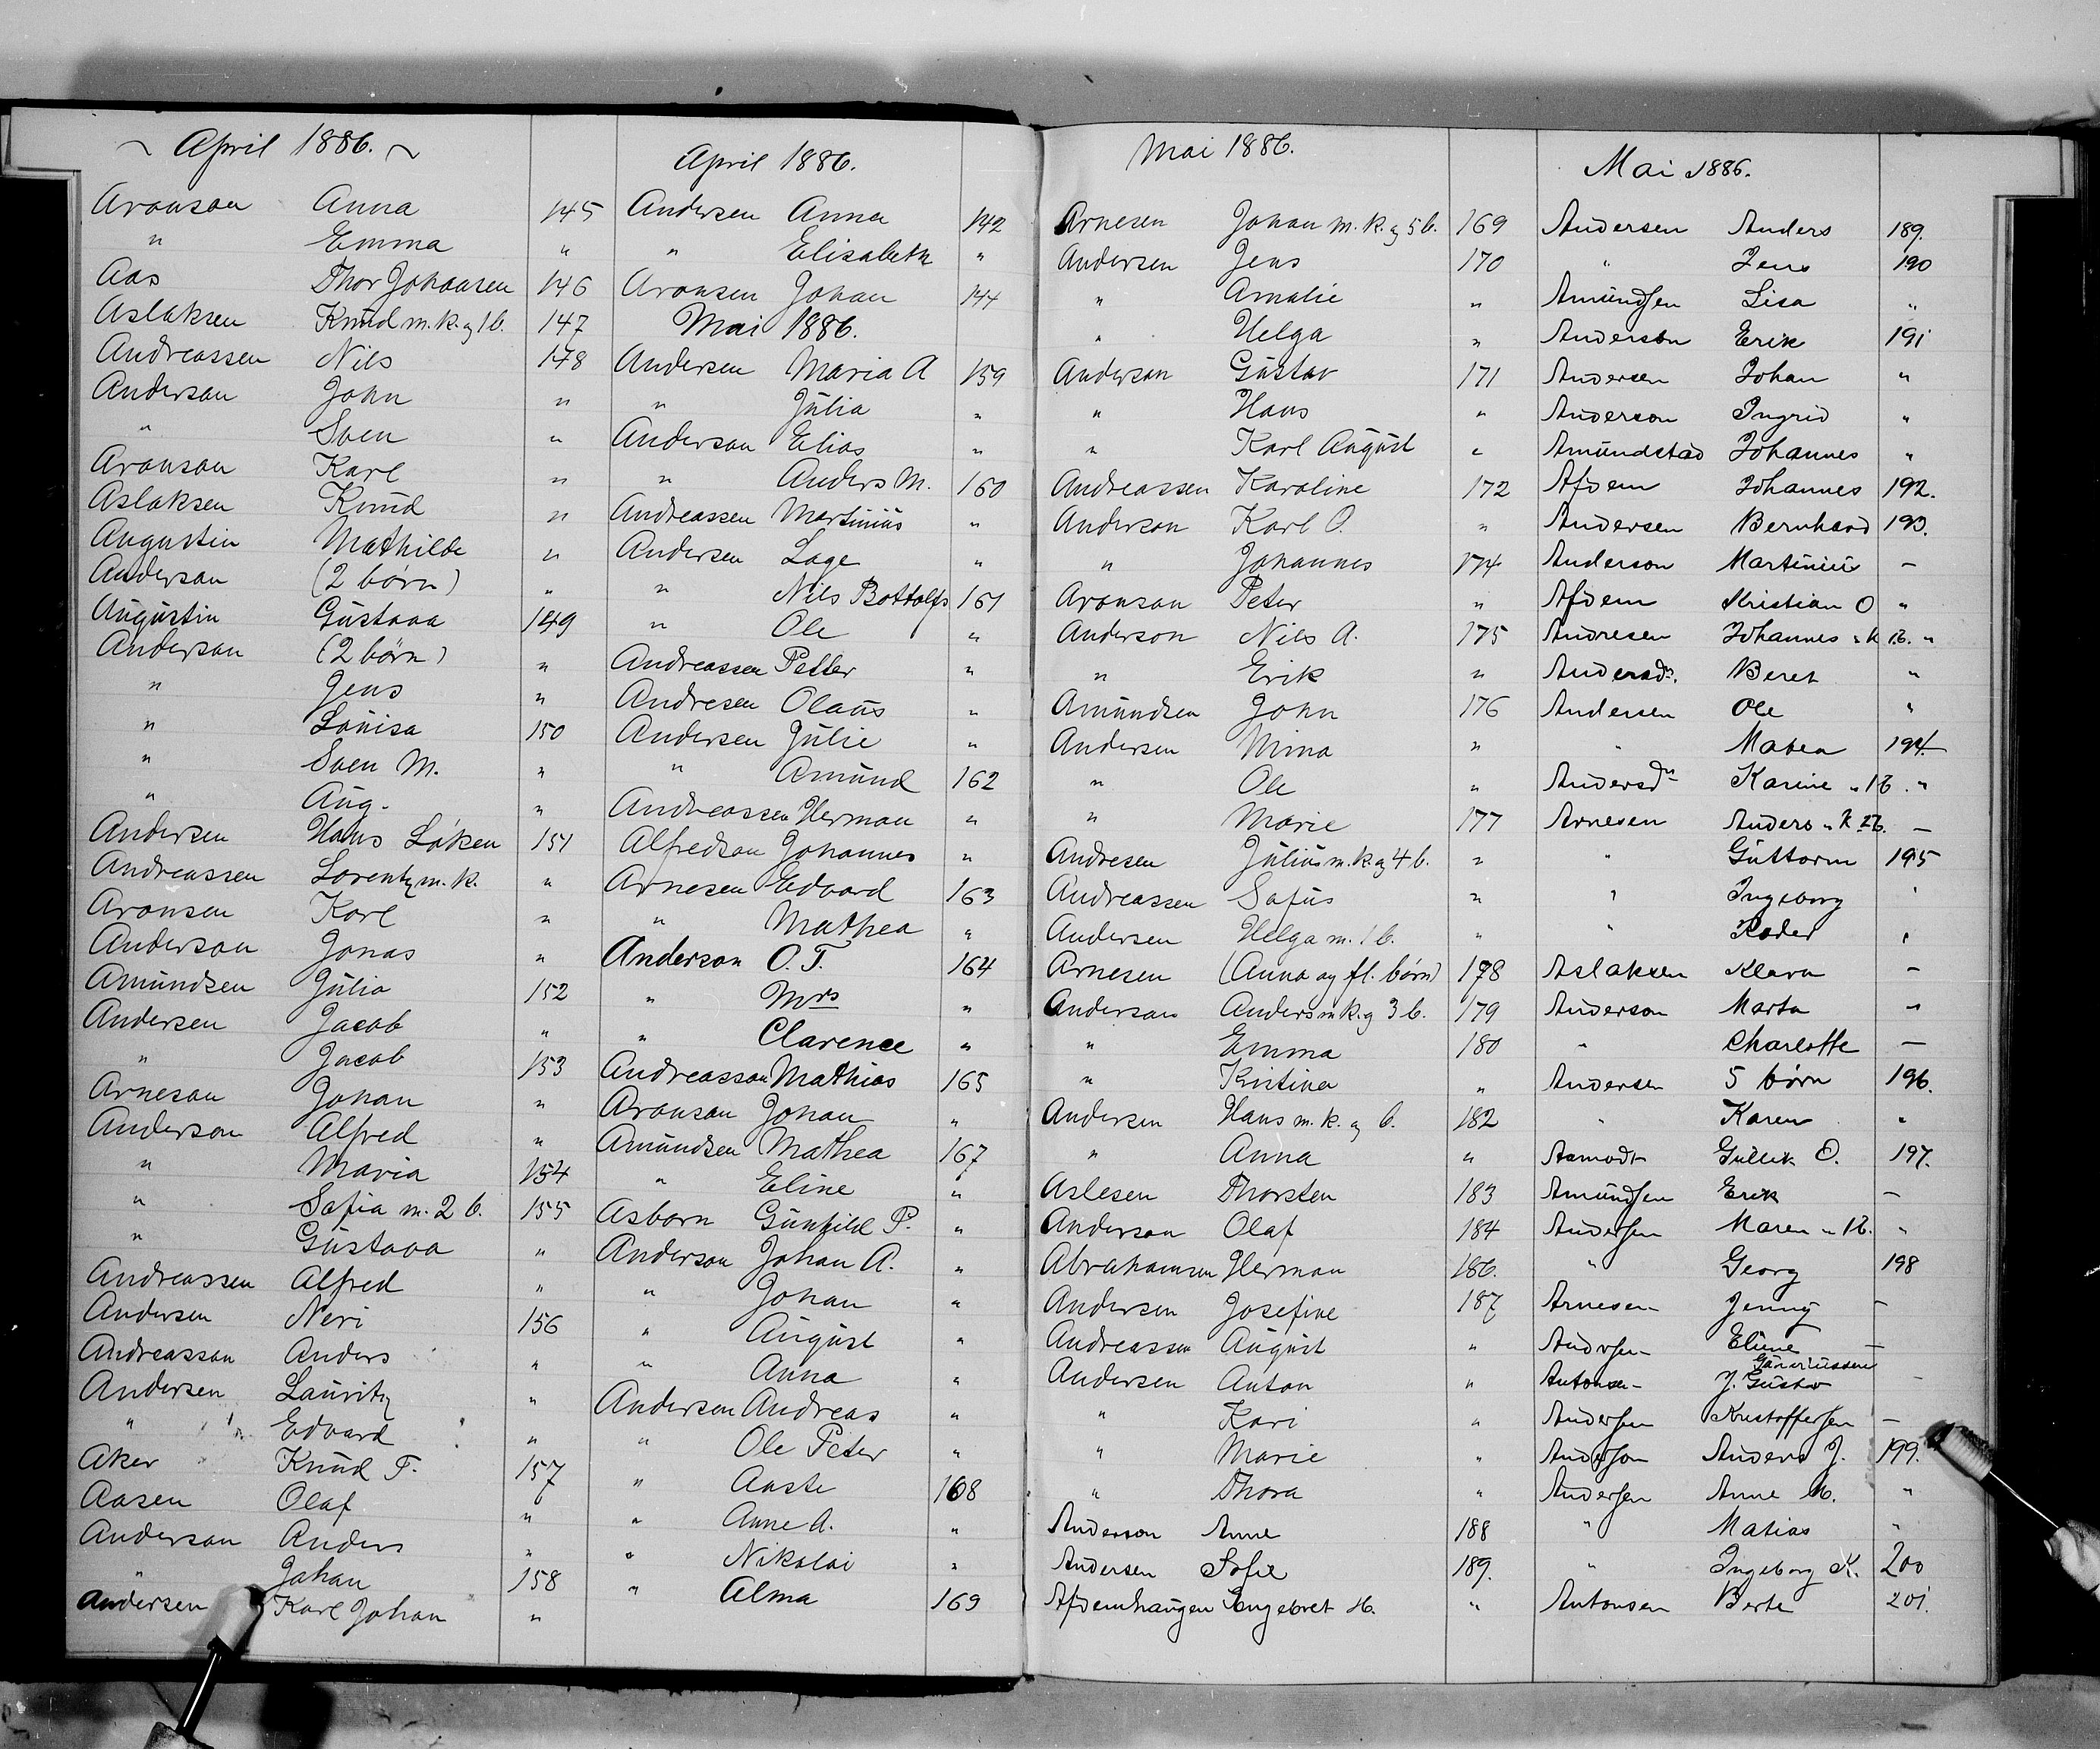 ~ April 1886. ~
Aronson Anna 145
" Emma "
Aas Thor Johansen 146
Aslaksen Knud m. k. og 1 b. 147
Andreassen Nils 148
Anderson John "
" Sven "
Aronson Karl "
Aslaksen Knud "
Augustin Mathilde "
Anderson (2 børn) "
Augustin Gustava 149
Anderson (2 børn) "
" Jens "
" Louisa 150
" Sven M. "
" Aug. "
Andersen Hans Løken 151
Andreassen Lorentz m. k. "
Aronsen Karl "
Anderson Jonas "
Amundsen Julia 152
Andersen Jacob "
" Jacob 153
Arneson Johan "
Anderson Alfred "
" Maria 154
" Sofia m. 2 b. 155
" Gustava "
Andreassen Alfred "
Andersen Neri 156
Andreasson Anders "
Andersen Lauritz "
" Edvard "
Aker Knud T. 157
Aasen Olaf "
Anderson Anders "
" Johan 158
Andersen Karl Johan "
April 1886.
Andersen Anna 142
" Elisabeth "
Aronsen Johan 144
Mai 1886.
Andersen Maria A 159
" Julia "
Anderson Elias "
" Anders M. 160
Andreassen Martinius "
Andersen Lage "
" Nils Bottolfs 161
" Ole "
Andreassen Petter "
Andresen Olaus "
Andersen Julie "
" Amund 162
Andreassen Herman "
Alfredson Johannes "
Arnesen Edvard 163
" Mathea "
Anderson O. T. 164
" Mrs "
" Clarence "
Andreasson Mathias 165
Aronson Johan "
Amundsen Mathea 167
" Eline "
Asborn Gunhild P. "
Anderson Johan A. "
" Johan "
" August "
" Anna "
Andersen Andreas "
" Ole Peter "
" Aaste 168
" Anne A. "
" Nikolai "
" Alma 169
Mai 1886.
Arnesen Johan m. k. og 5 b. 169
Andersen Jens 170
" Amalie "
" Helga "
Anderson Gustav 171
" Hans "
" Karl August "
Andreassen Karoline 172
Anderson Karl O. "
" Johannes 174
Aronson Peter "
Anderson Nils A. 175
" Erik "
Amundsen John 176
Andersen Mina "
" Ole "
" Marie 177
Andresen Julius m. k. og 4 b. "
Andreassen Sofus "
Andersen Helga m. 1 b. "
Arnesen (Anna og fl. børn) 178
Anderson Anders m k. og 3 b. 179
" Emma 180
" Kristina "
Andersen Hans m. k. og b. 182
" Anna "
Aslesen Thorsten 183
Anderson Olaf 184
Abrahamsen Herman 186.
Andersen Josefine 187
Andreassen August "
Andersen Anton "
" Kari "
" Marie "
" Thora "
Anderson Anne 188
Andersen Sofie 189.
Afdemhaugen Engebret H. "
Mai 1886.
Andersen Anders 189.
" Jens 190
Amundsen Lisa "
Anderson Erik 191
Andersen Johan "
Anderson Ingrid "
Amundstad Johannes "
Afdem Johannes 192.
Andersen Bernhard 193.
Anderson Martinius –
Afdem Kristian O "
Andresen Johannes " k 1 b. "
Andersdn. Beret "
Andersen Ole "
" Matea 194
Andersdn Karine " 1 b. "
Arnesen Anders " k 2 b. –
" Guttorm 195
" Ingeborg "
" Peder "
Aslaksen Klara –
Anderson Marta "
" Charlotte –
Andersen 5 børn 196.
" Karen "
Aamodt Gullik O. 197.
Amundsen Erik –
Andersen Maren " 1 b. "
" Georg 198
Arnesen Jenny –
Andersen Eline –
Antonsen J. Gustav –
Andersen Kristoffersen –
Anderson Anders J. 199.
Andersen Anne M. "
" Matias "
" Ingeborg K. 200
Antonsen Berte 201.